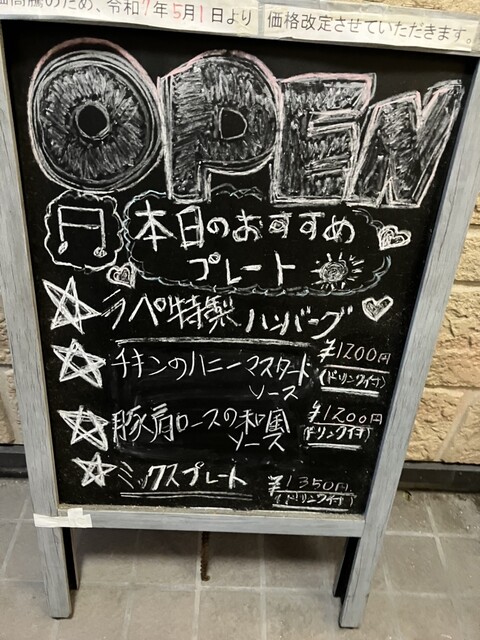 価高騰のため、令和7年5月1日より 価格改定させていただきます。
OPEN
本日のおすすめ
プレート
ラペ特製ハンバーグ
チキンのハニーマスタード ¥1200円
ソース (ドリンク付)
豚肩ロースの和風 ¥1200円
ソース (ドリンク付)
ミックスプレート ¥1350円
(ドリンク付)